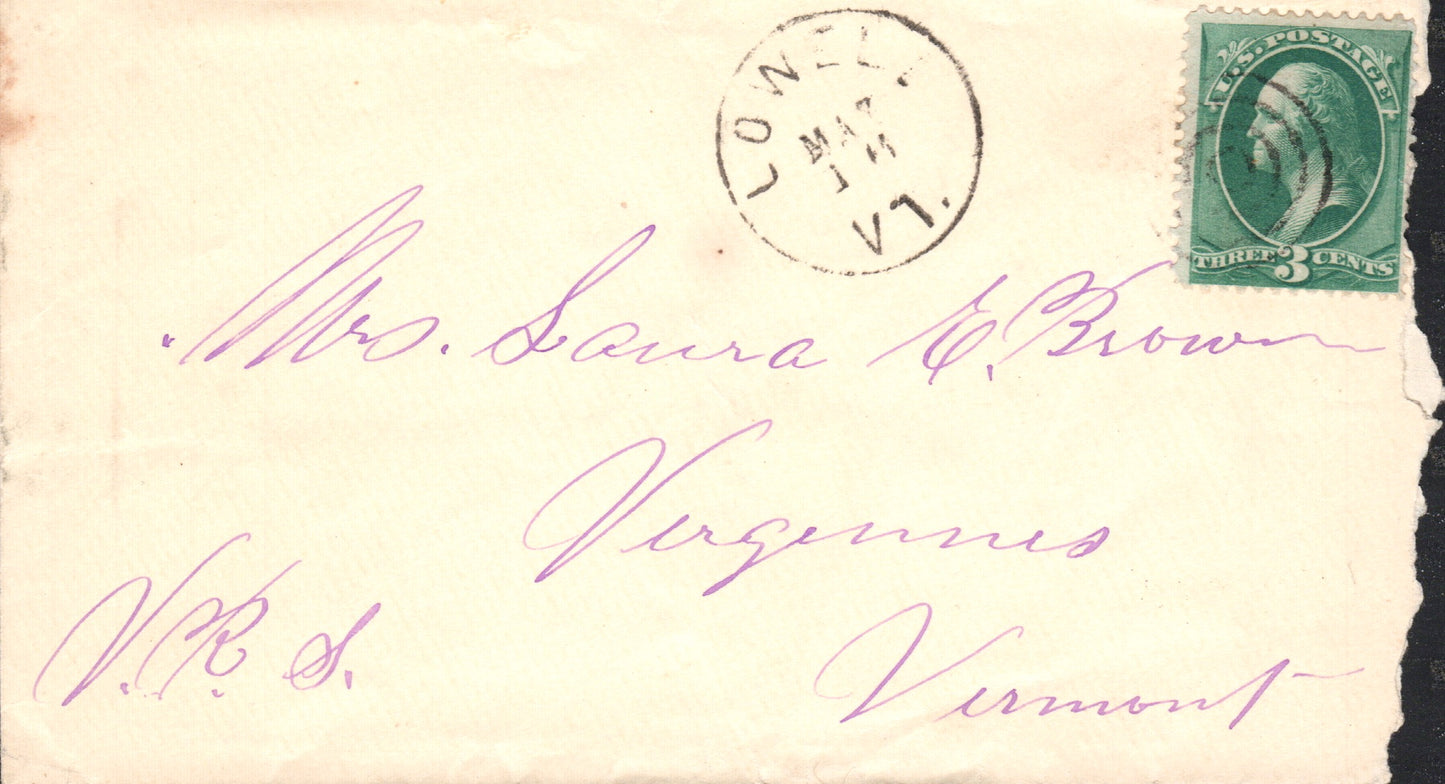 LOWELL
VT.
U.S. POSTAGE
THREE 3 CENTS
Mrs. Laura E. Brown
Vergennes
V.R.S.
Vermont